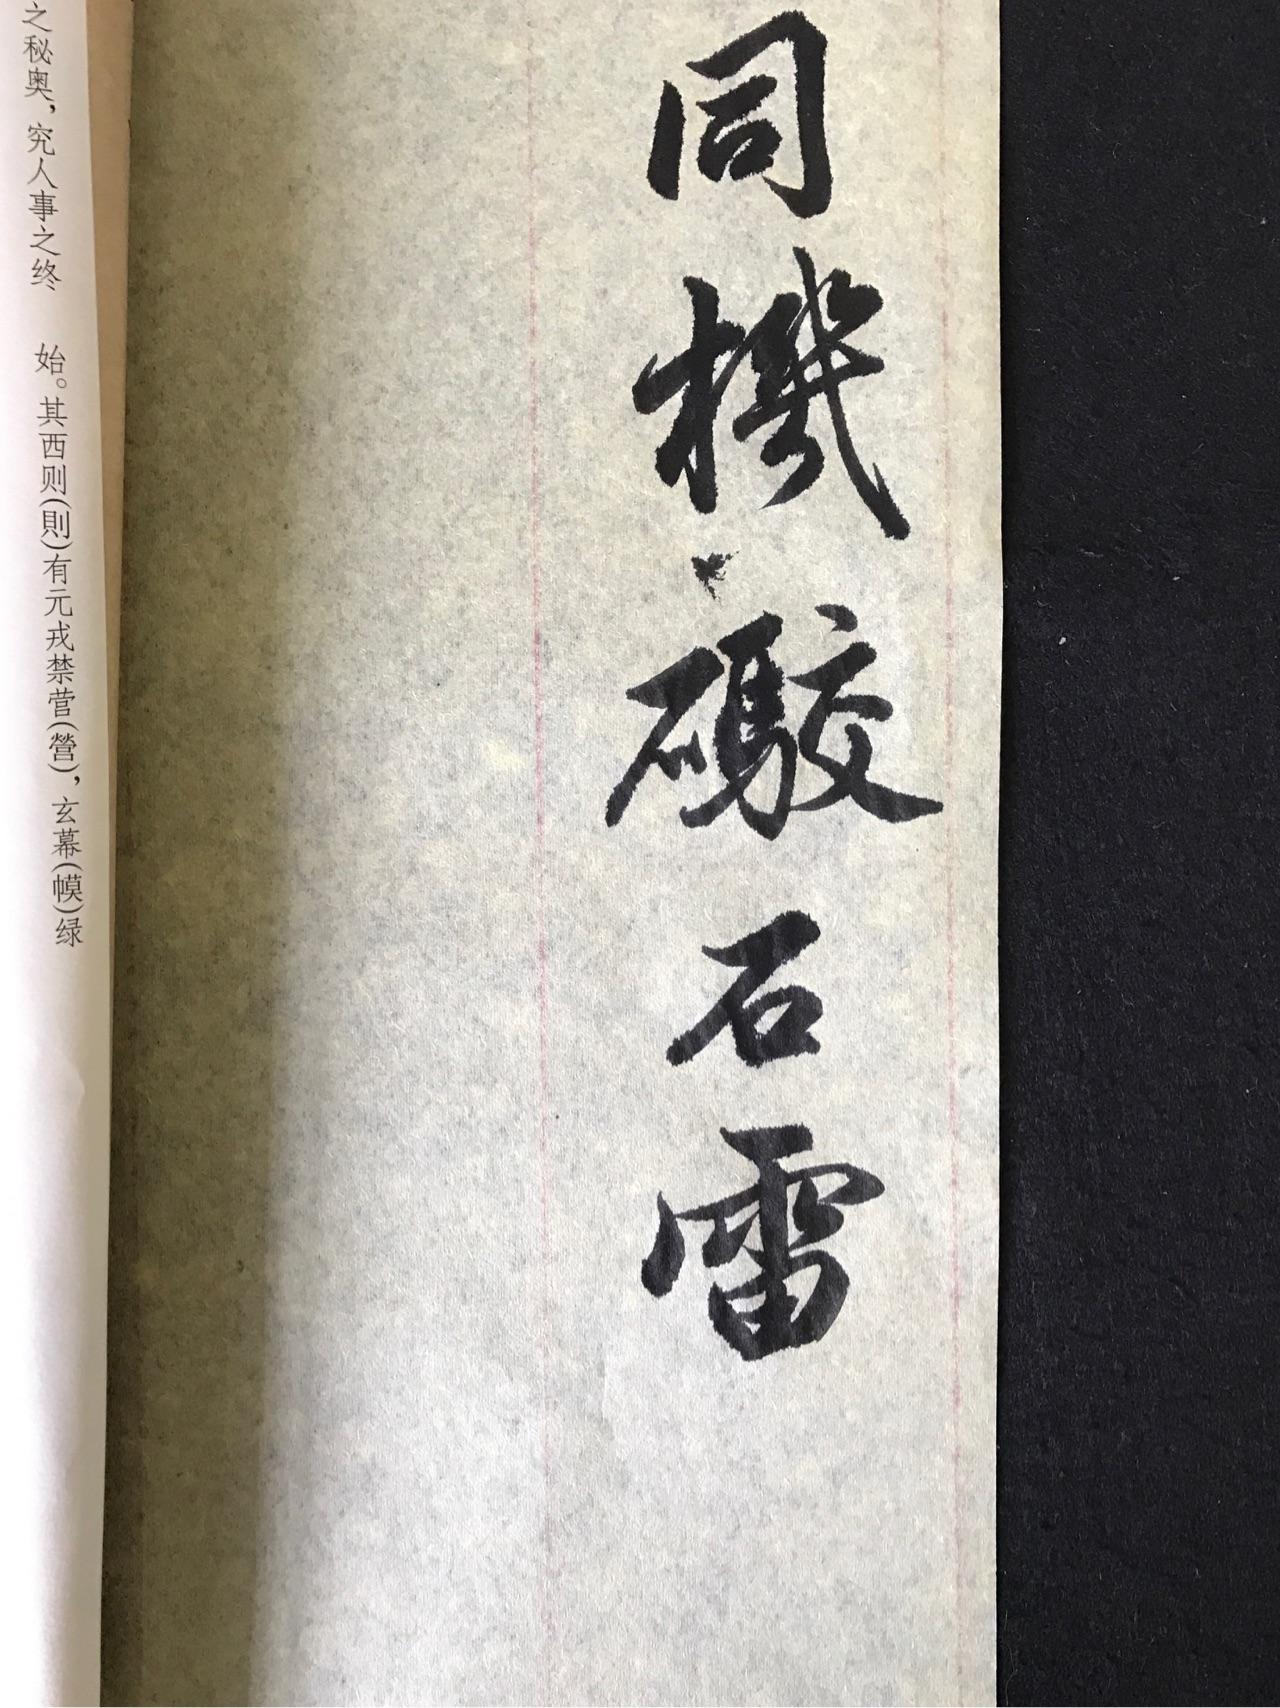 同機礮石雷
之秘奥，究人事之终　始。其西则(則)有元戎禁营(營)，玄幕(幙)绿